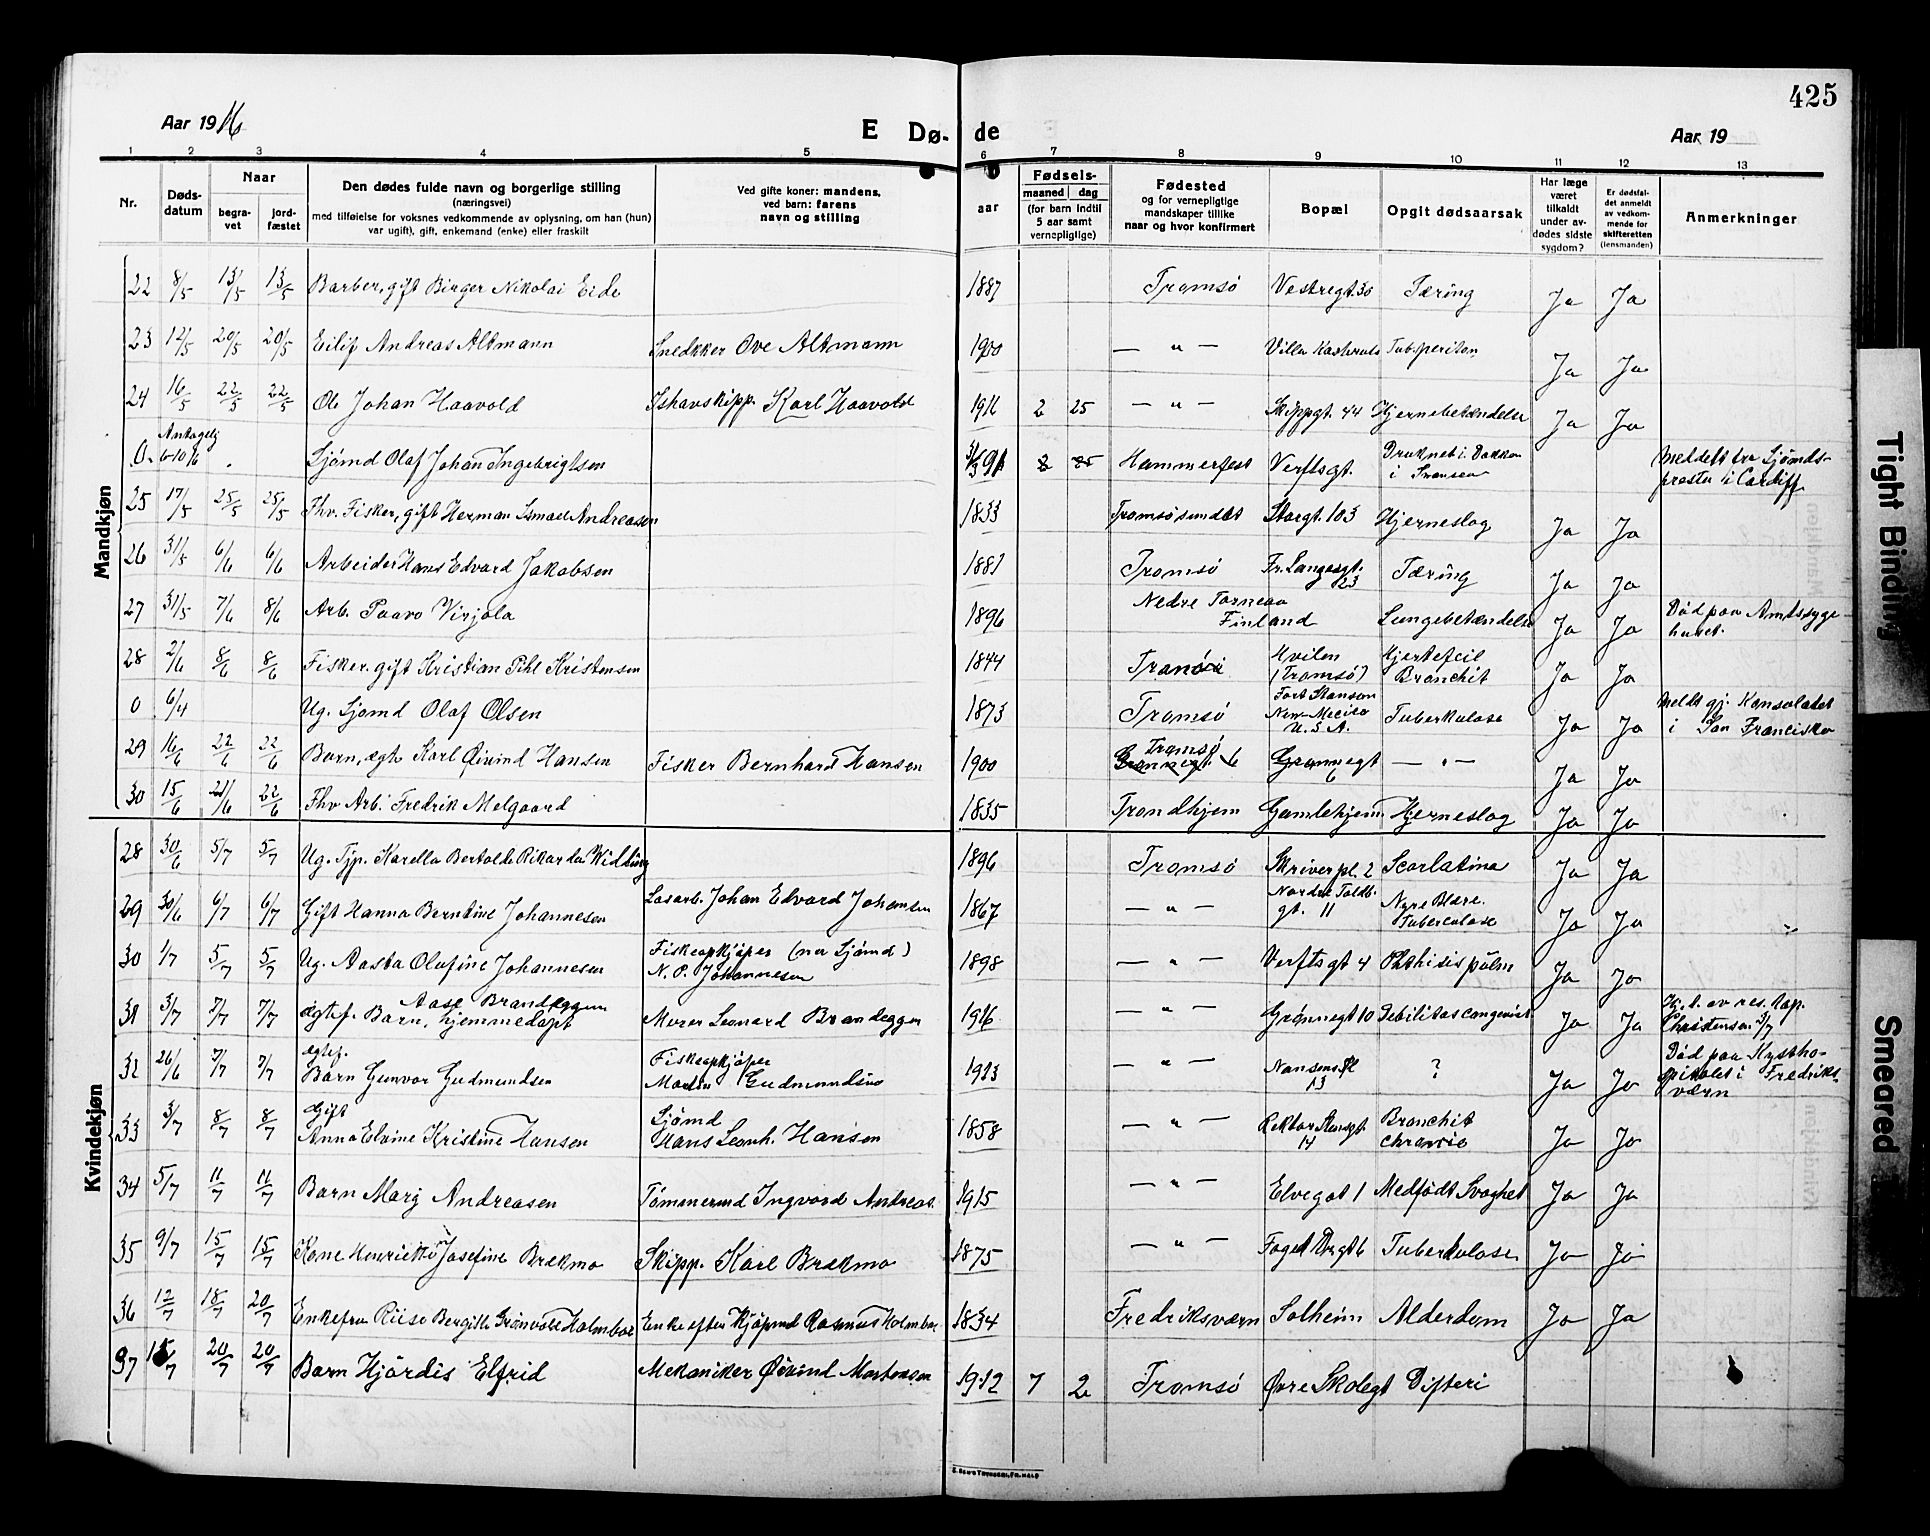 425
Aar 1916
E Dø- de
Aar 19
1 2 3 4 5 6 7 8 9 10 11 12 13
Nr.
Døds-
datum
Naar
begra-
vet
jord-
fæstet
Den dødes fulde navn og borgerlige stilling
(næringsvei)
med tilføielse for voksnes vedkommende av oplysning, om han (hun)
var ugift), gift, enkemand (enke) eller fraskilt
Ved gifte koner: mandens,
ved barn: farens
navn og stilling
aar
Fødsels-
maaned dag
(for barn indtil
5 aar samt
vernepligtige)
Fødested
og for vernepligtige
mandskaper tillike
naar og hvor konfirmert
Bopæl
Opgit dødsaarsak
Har læge
været
tilkaldt
under av-
dødes sidste
sygdom?
Er dødsfal-
det anmeldt
av vedkom-
mende for
skifteretten
(lensmanden)
Anmerkninger
Mandkjøn
22 8/5 13/5 13/5 Barber, gift Birger Nikolai Eide 1887 Tromsø Vestregt. 30 Tæring Ja Ja
23 12/5 20/5 20/5 Eilif Andreas Altmann Snedkker Ove Altmann 1900 — " — Villa Tubsperiton Ja Ja
24 16/5 22/5 22/5 Ole Johan Haavold Ishavskipp. Karl Haavold 1916 2 25 — " — Skippgt. 44 Hjernebetændelse Ja Ja
0. Antagelig 6-10/6 Sjømd Olaf Johan Ingebrigtsen 31/3 91 2 25 Hammerfest Verftsgt. Druknet i Dokken
i Swansea Meldelt av Sjømds-
prester i Cardiff
25 17/5 25/5 25/5 Fhv. Fisker, gift Herman Ismael Andreasen 1833 Tromsøsundet Storgt. 103 Hjerneslag Ja Ja
26 31/5 6/6 6/6 Arbeider Hans Edvard Jakobsen 1881 Tromsø Fr. Langesgt.
23 Tæring Ja Ja
27 31/5 7/6 8/6 Arb. Paavo Virjola 1896 Nedre Torneaa
Finland Lungebetændelse Ja Ja Død paa Amtssyge
huset.
28 2/6 8/6 8/6 Fisker, gift Kristian Pihl Kristensen 1844 Hvilen
(Tromsø) Hjertefeil
Bronchit Ja Ja
0 6/4 Ug. Sjømd Olaf Olsen 1873 Tromsø Fort Stanson
New-Mecico
U.S.A. Tuberkulose Ja Ja Meldt gj. Konsulatet
i San Francisko
29 16/6 22/6 22/6 Barn, ægte Karl Øivind Hansen Fisker Bernhard Hansen 1900 Tromsø
Grønnegt. 6 Grønnegt
6 — " — Ja Ja
30 15/6 21/6 22/6 Fhv Arb. Fredrik Melgaard 1835 Trondhjem Gamlehjem Hjerneslag Ja Ja
Kvindekjøn
28 30/6 5/7 5/7 Ug. Tjp. Karella Bertolde Rikarda Widding 1896 Tromsø Skriverpl. 2 Scarlatina Ja Ja
29 30/6 6/7 6/7 Gift Hanna Berntine Johannesen Losarb. Johan Edvard Johansen 1867 — " — Nordre Toldb.
gt. 11 Nyre Blære.
Tuberculose Ja Ja
30 1/7 5/7 5/7 Ug. Aasta Olafine Johannesen Fiskeopkjøper (nu Sjømd)
N. P. Johannesen 1898 — " — Verftsgt 4 Phthisis pulm Ja Ja
31 3/7 7/7 7/7 ægtef. Barn, Aase Brandeggen
hjemmedøpt Murer Leonard Brandeggen 1916 — " — Grønnegt 10 Debilitas congenit Ja Ja Hj. d. av res. kap.
Christensen 3/7
32 26/6 7/7 7/7 ægtef.
Barn Gunvor Gudmundsen Fiskeopkjøper
Martin Gudmundsen 1913 — " — Nansenspl
13 ? Ja Ja Død paa Kystho-
spitalet i Fredriks-
værn
33 3/7 8/7 8/7 Gift
Anna Elvine Kristine Hansen Sjømd
Hans Leonh. Hansen 1858 — " — Rektor Steengt.
14 Bronchit
chronic Ja Ja
34 5/7 11/7 11/7 Barn Marg Andreasen Tømmermd Ingvard Andreas. 1915 — " — Elvegat 1 Medfødt Svaghet Ja Ja
35 9/7 15/7 15/7 Kone Henriette Josefine Brekmo Skipp. Karl Brekmo 1875 — " — Foged Dregt 6 Tuberkulose Ja Ja
36 12/7 18/7 20/7 Enkefru Riise Bergitte Grønvold Holmboe Enke efter Kjøpmd Rasmus Holmboe 1834 Fredriksværn Solheim Alderdom Ja Ja
37 15/7 20/7 20/7 Barn Hjördis Elfrid Mekaniker Øivind Mortensen 1912 7 2 Tromsø Øvre Skolegt Difteri
Tight Binding
Smeared